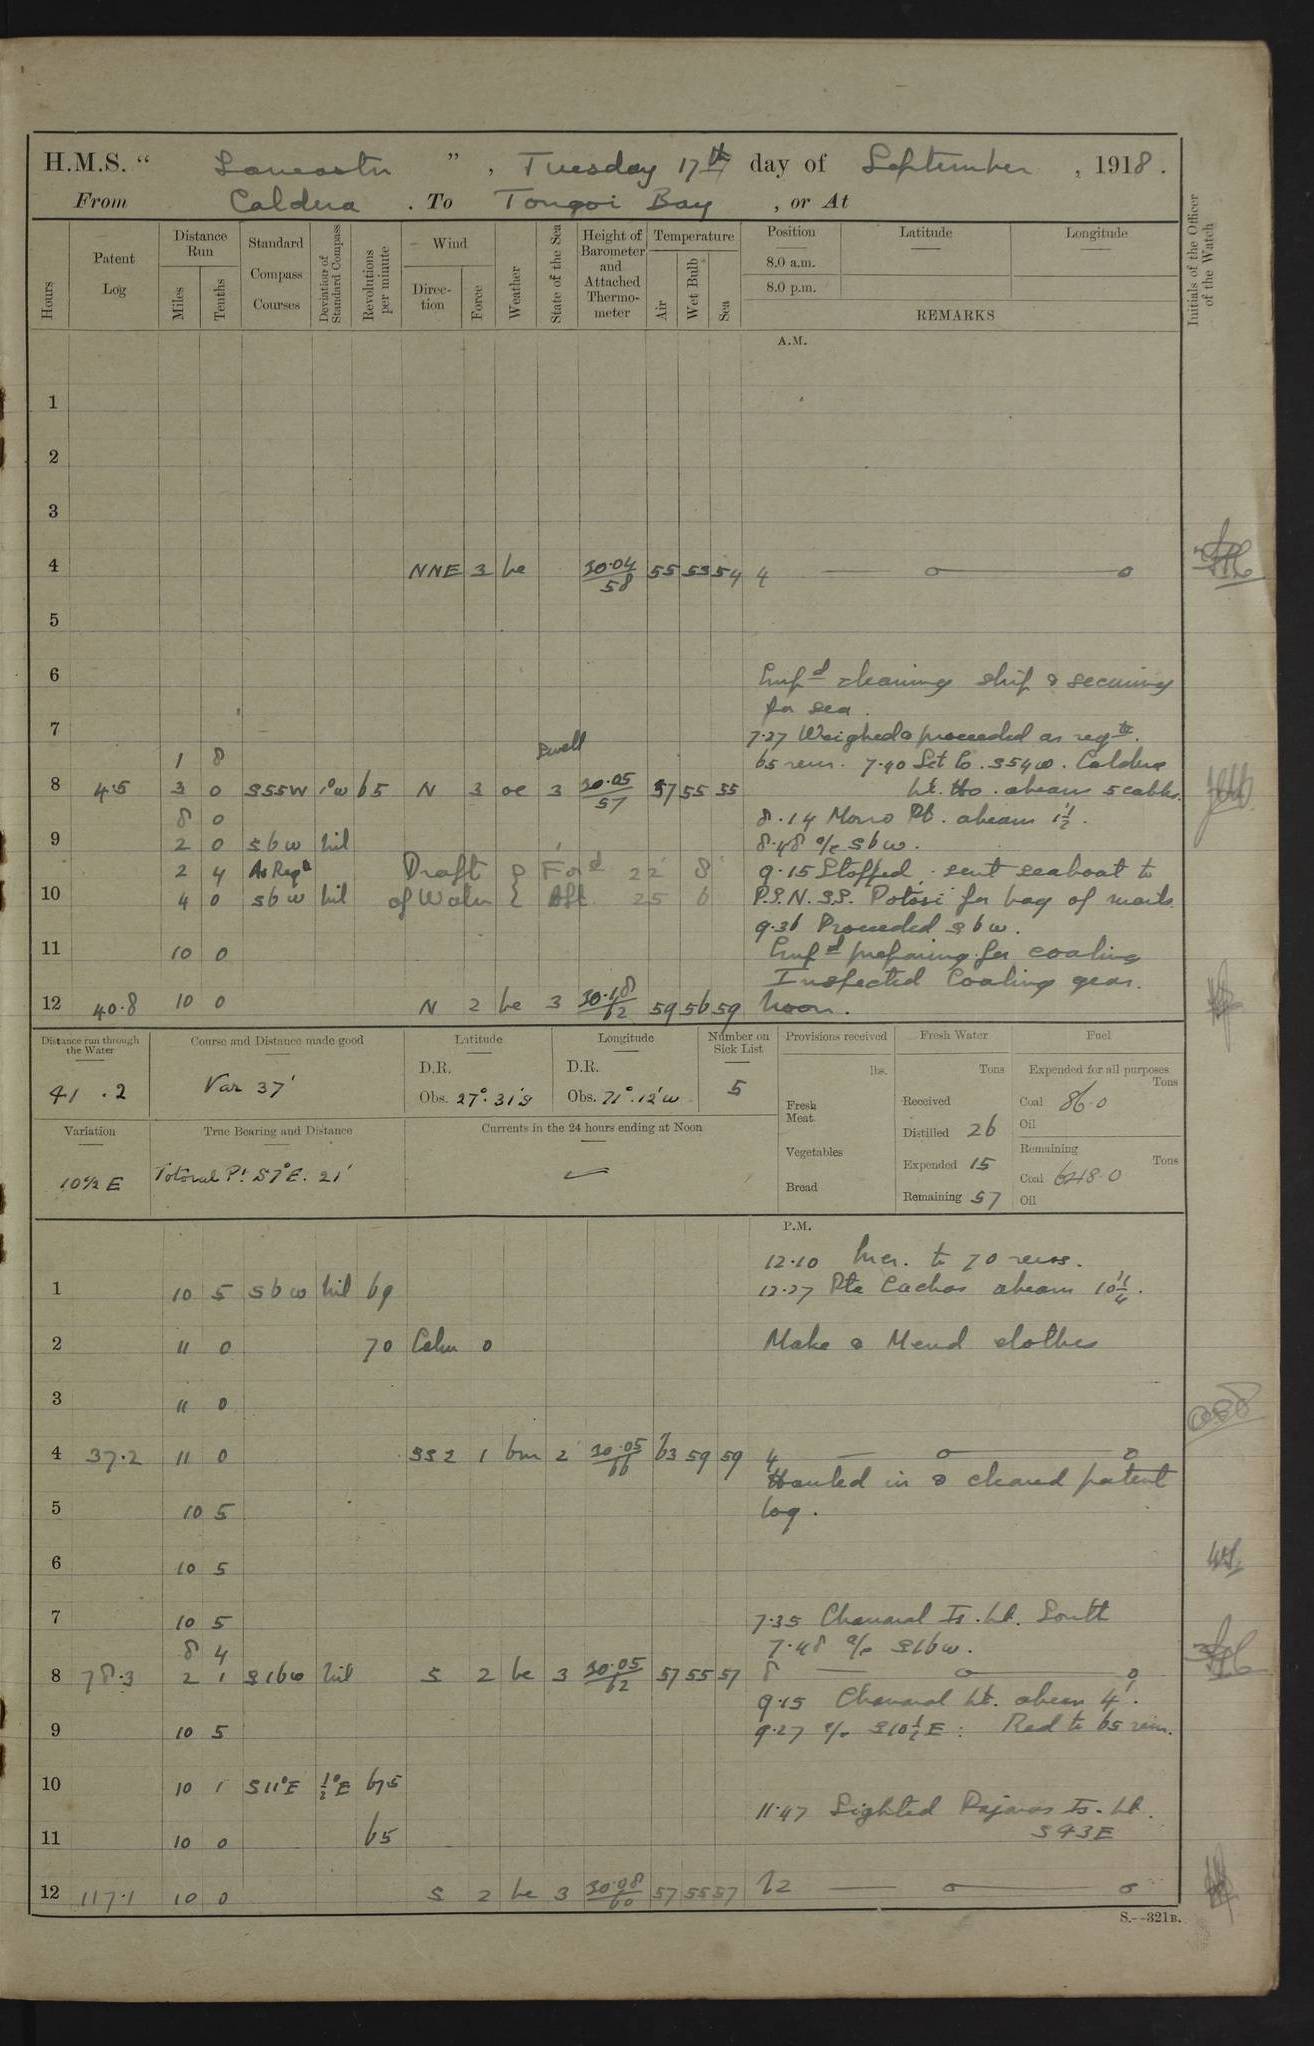 H.M.S. “ Lancaster ”, Tuesday 17th day of September, 1918.
From Caldera. To Tongoi Bay, or At
Hours
Patent Log
Distance Run
Miles
Tenths
Standard Compass Courses
Deviation of Standard Compass
Revolutions per minute
Wind
Direction
Force
Weather
State of the Sea
Height of Barometer and Attached Thermometer
Temperature
Air
Wet Bulb
Sea
Position
Latitude
Longitude
8.0 a.m.
8.0 p.m.
REMARKS
Initials of the Officer of the Watch
A.M.
1
2
3
4 NNE 3 bc 30.04/58 55 53 54 4
5
6
Empd cleaning ship & securing
for sea.
7
7.27 Weighed & proceeded as reqte.
1 8 Swell 65 revs. 7.40 Set Co. S54W. Caldera
8 4.5 3 0 S55W 1°W 65 N 3 oc 3 30.05/57 57 55 55 Lt. Ho. abeam 5 cables.
8 0 8.14 Morro Pt. abeam 1½'.
9 2 0 SbW nil 8.48 a/c SbW.
2 4 As Reqte Draft Ford 22' 8" 9.15 Stopped, sent seaboat to
10 4 0 SbW nil of Water Aft 25 6 P.S.N. S.S. Potosi for bag of mails
9.36 Proceeded SbW.
11 10 0 Empd preparing for coaling
Inspected Coaling gear.
12 40.8 10 0 N 2 bc 3 30.18/62 59 56 59 Noon.
Distance run through the Water
41.2
Course and Distance made good
Var 37'
Latitude
D.R.
Obs. 27°.31'S
Longitude
D.R.
Obs. 71°.12'W
Number on Sick List
5
Provisions received
lbs.
Fresh Meat
Vegetables
Bread
Fresh Water
Tons
Received
Distilled 26
Expended 15
Remaining 57
Fuel
Expended for all purposes
Tons
Coal 86.0
Oil
Remaining
Tons
Coal 648.0
Oil
Variation
10½ E
True Bearing and Distance
Totoral Pt. S7°E. 21'
Currents in the 24 hours ending at Noon
P.M.
12.10 Incr. to 70 revs.
1 10 5 SbW nil 69 12.27 Pta Cachos abeam 10¼'.
2 11 0 70 Calm 0 Make & Mend clothes
3 11 0
4 37.2 11 0 1 bm 2 30.05/66 63 59 59 4
Hauled in & cleared patent
5 10 5 log.
6 10 5
7 10 5 7.35 Chanaral Is. Lt. South
8 4 7.48 a/c S16W.
8 78.3 2 1 S16W nil S 2 bc 3 30.05/62 57 55 57 8
9.15 Chanaral Lt. abeam 4'.
9 10 5 9.27 a/c S10½E: Red to 65 revs.
10 10 1 S11°E ½°E 67.5
11.47 Sighted Pajaros Is. Lt.
11 10 0 65 S43E
12 117.1 10 0 S 2 bc 3 30.08/60 57 55 57 12
S.--321B.